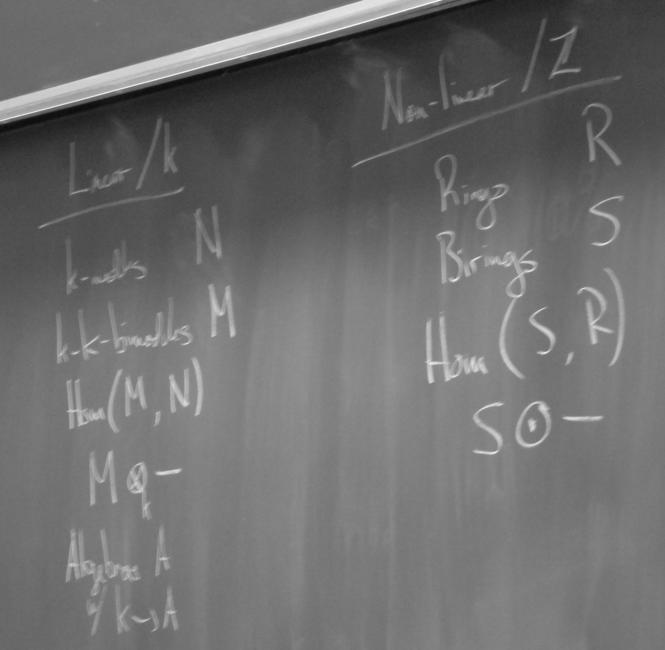 Linear / k
k-modles N
k-k-bimodles M
Hom(M, N)
M ⊗_k −
Algebras A
w/ k → A
Non-linear / ℤ
Rings R
Birings S
Hom(S, R)
S ⊙ −